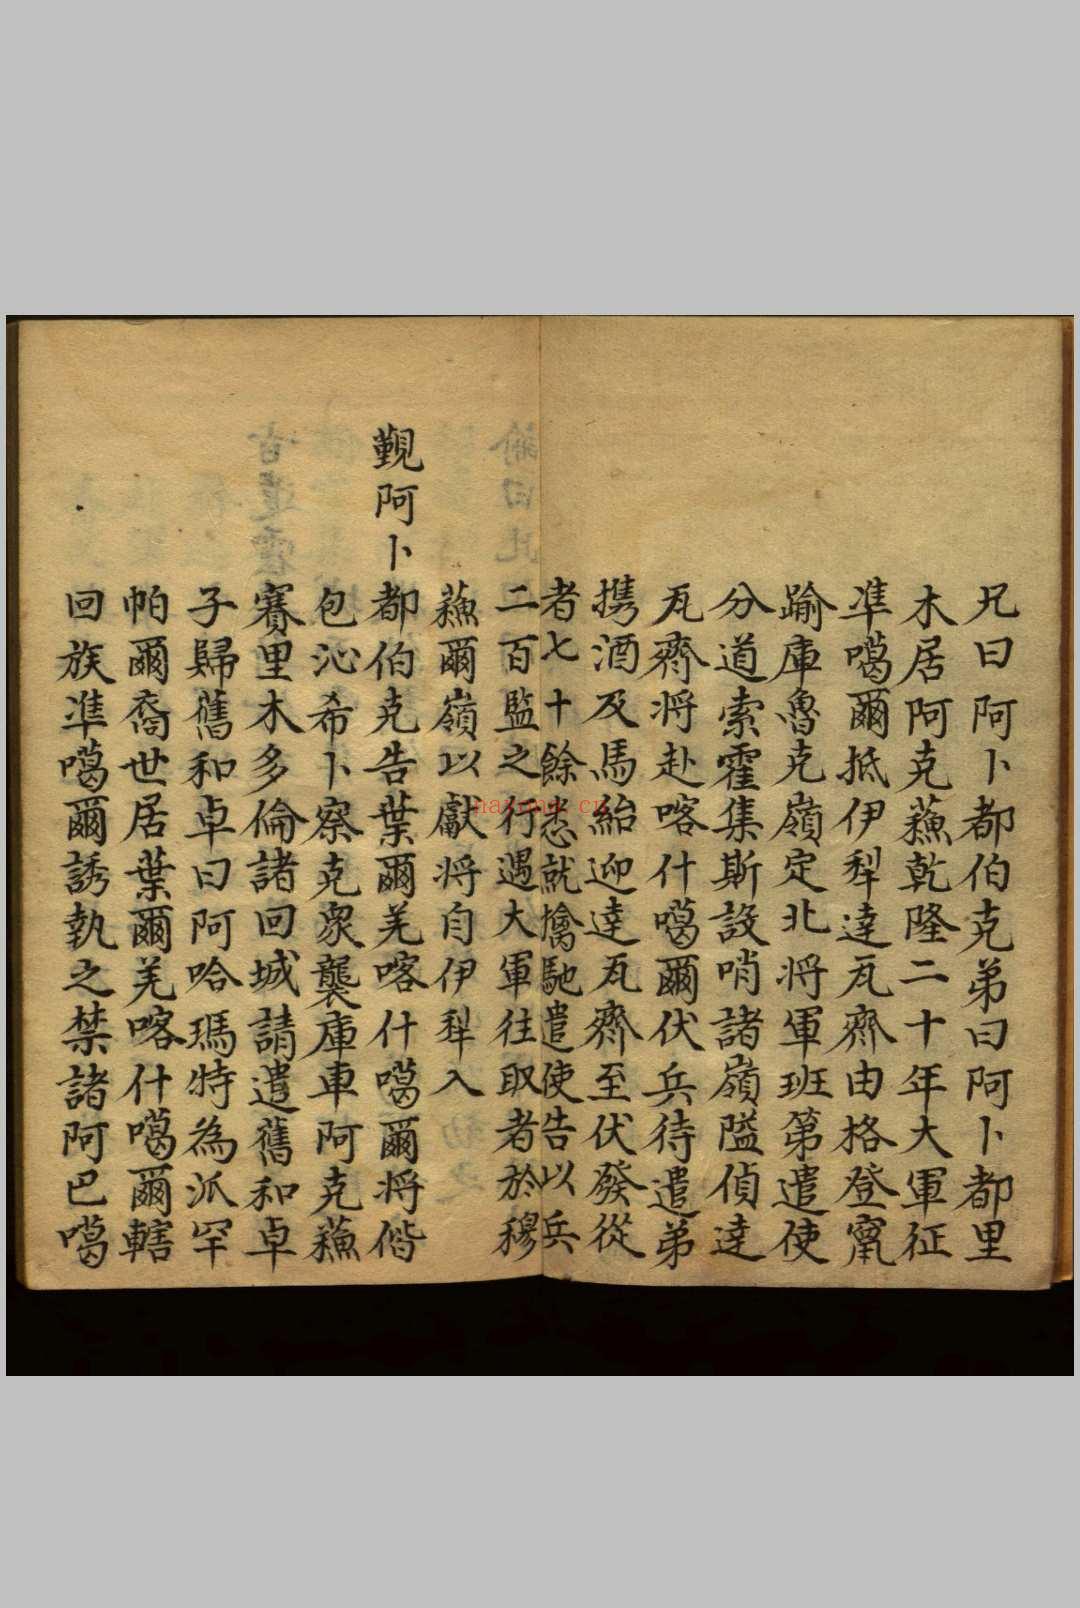 兄曰阿卜都伯克弟曰阿卜都里
木居阿克蘓乾隆二十年大軍征
凖噶爾抵伊犁達瓦齊由格登竄
踰庫魯克嶺定北将軍班第遣使
分道索霍集斯設哨諸嶺隘偵達
瓦齊将赴喀什噶爾伏兵待遣弟
携酒及馬紿迎達瓦齊至伏發從
者七十餘悉就擒馳遣使告以兵
二百監之行遇大軍往取者於穆
蘓爾嶺以獻将自伊犁入
覲阿卜都伯克告葉爾羌喀什噶爾将偕
包沁希卜察克衆襲庫車阿克蘓
賽里木多倫諸回城請遣舊和卓
子歸舊和卓曰阿哈瑪特為派罕
帕爾裔世居葉爾羌喀什噶爾轄
回族凖噶爾誘執之禁諸阿巴噶